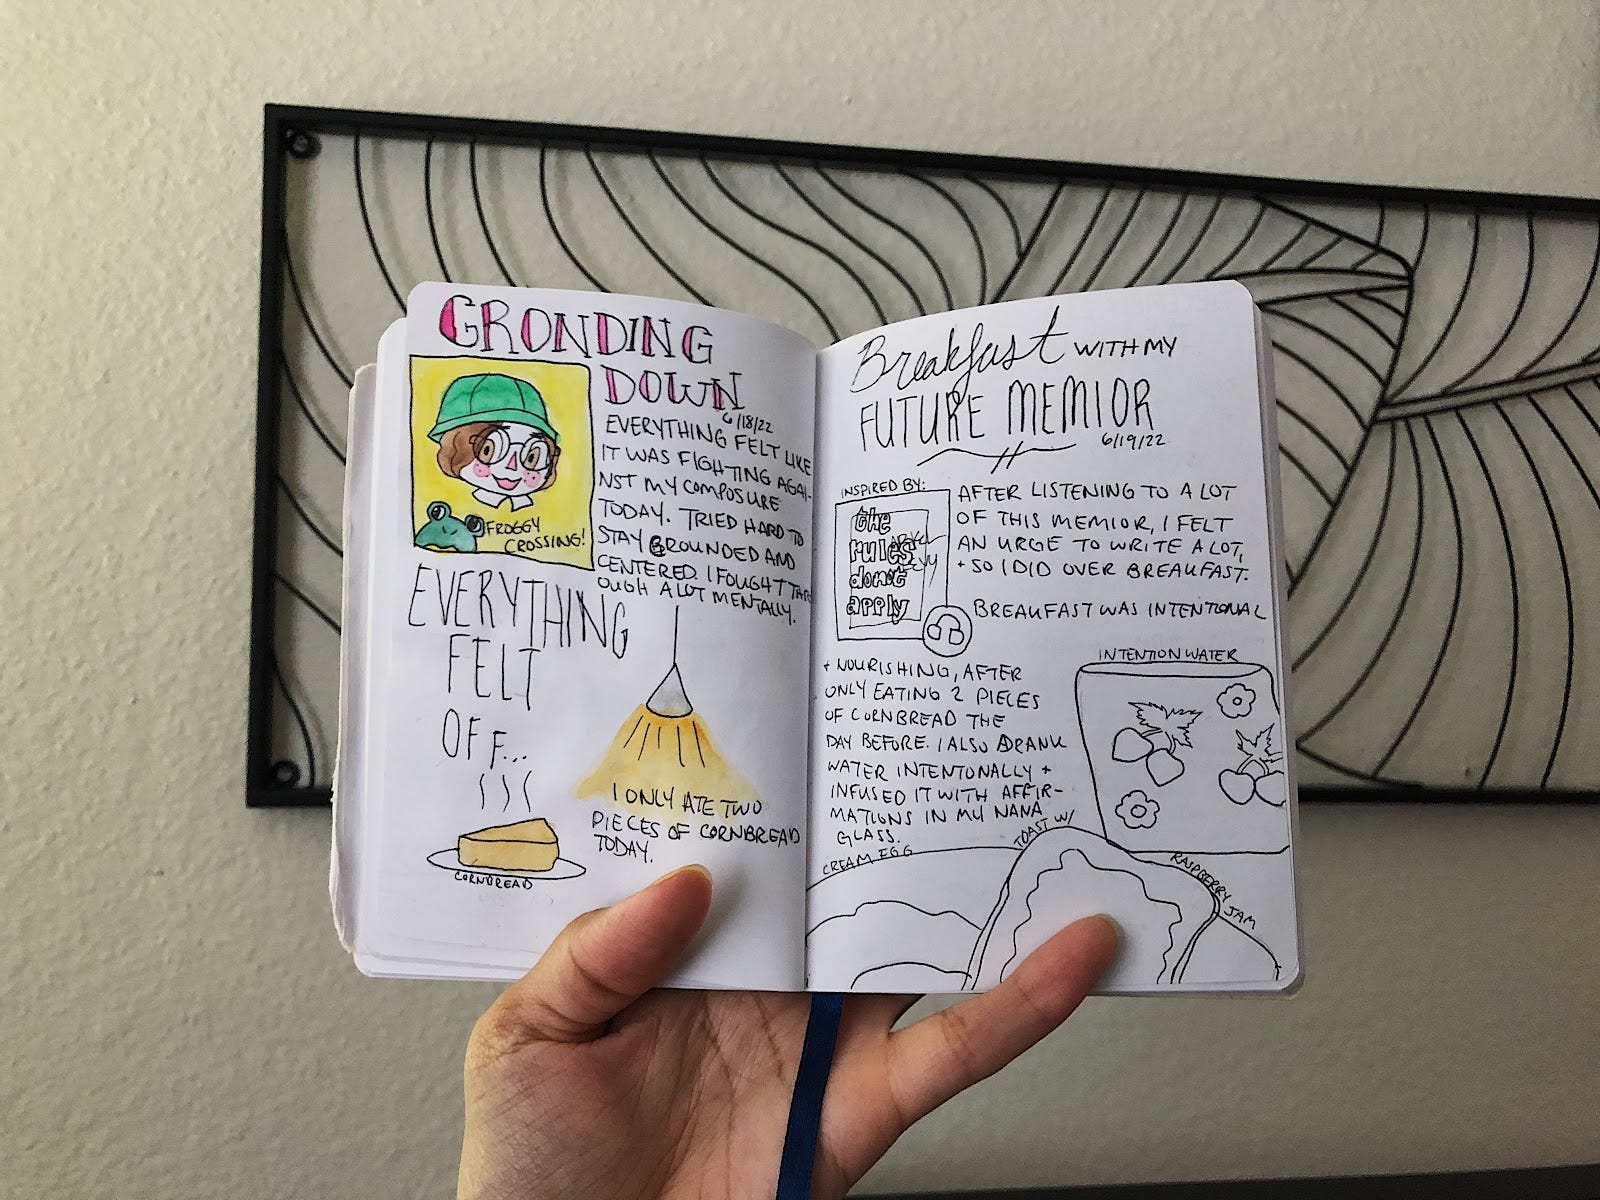 GRONDING
DOWN
6/18/22
EVERYTHING FELT LIKE
IT WAS FIGHTING AGAI-
NST MY COMPOSURE
TODAY. TRIED HARD TO
STAY GROUNDED AND
CENTERED. I FOUGHT THR
OUGH A LOT MENTALLY.
FROGGY
CROSSING!
EVERYTHING
FELT
OFF...
I ONLY ATE TWO
PIECES OF CORNBREAD
TODAY.
CORNBREAD
Breakfast WITH MY
FUTURE MEMIOR
6/19/22
INSPIRED BY:
the
rules
don't
apply
AFTER LISTENING TO A LOT
OF THIS MEMIOR, I FELT
AN URGE TO WRITE A LOT,
+ SO I DID OVER BREAKFAST.
BREAKFAST WAS INTENTIONAL
+ NOURISHING, AFTER
ONLY EATING 2 PIECES
OF CORNBREAD THE
DAY BEFORE. I ALSO DRANK
WATER INTENTONALLY +
INFUSED IT WITH AFFIR-
MATIONS IN MY NANA
GLASS.
INTENTION WATER
CREAM EGG
TOAST W/
RASPBERRY
JAM